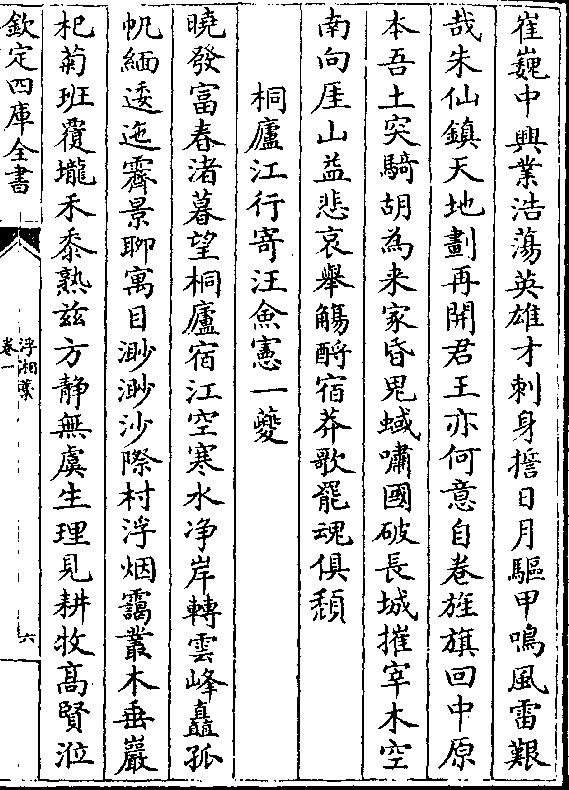 崔巍中興業浩蕩英雄才刺身擔日月驅甲鳴風雷艱
哉朱仙鎮天地劃再開君王亦何意自卷旌旗回中原
本吾土突騎胡為来家昏鬼蜮嘯國破長城摧宰木空
南向厓山益悲哀舉觴酹宿莽歌罷魂俱頽
桐廬江行寄汪僉憲一夔
曉發富春渚暮望桐廬宿江空寒水净岸轉雲峰矗孤
帆緬逶迤霽景聊寓目渺渺沙際村浮烟靄叢木垂巖
杞菊班覆壠禾黍熟兹方静無虞生理見耕牧高賢涖
欽定四庫全書
浮湘藁
卷一
六